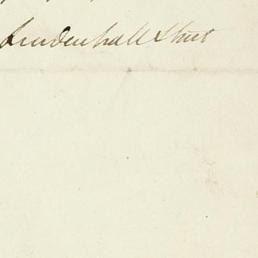 Leadenhall Street